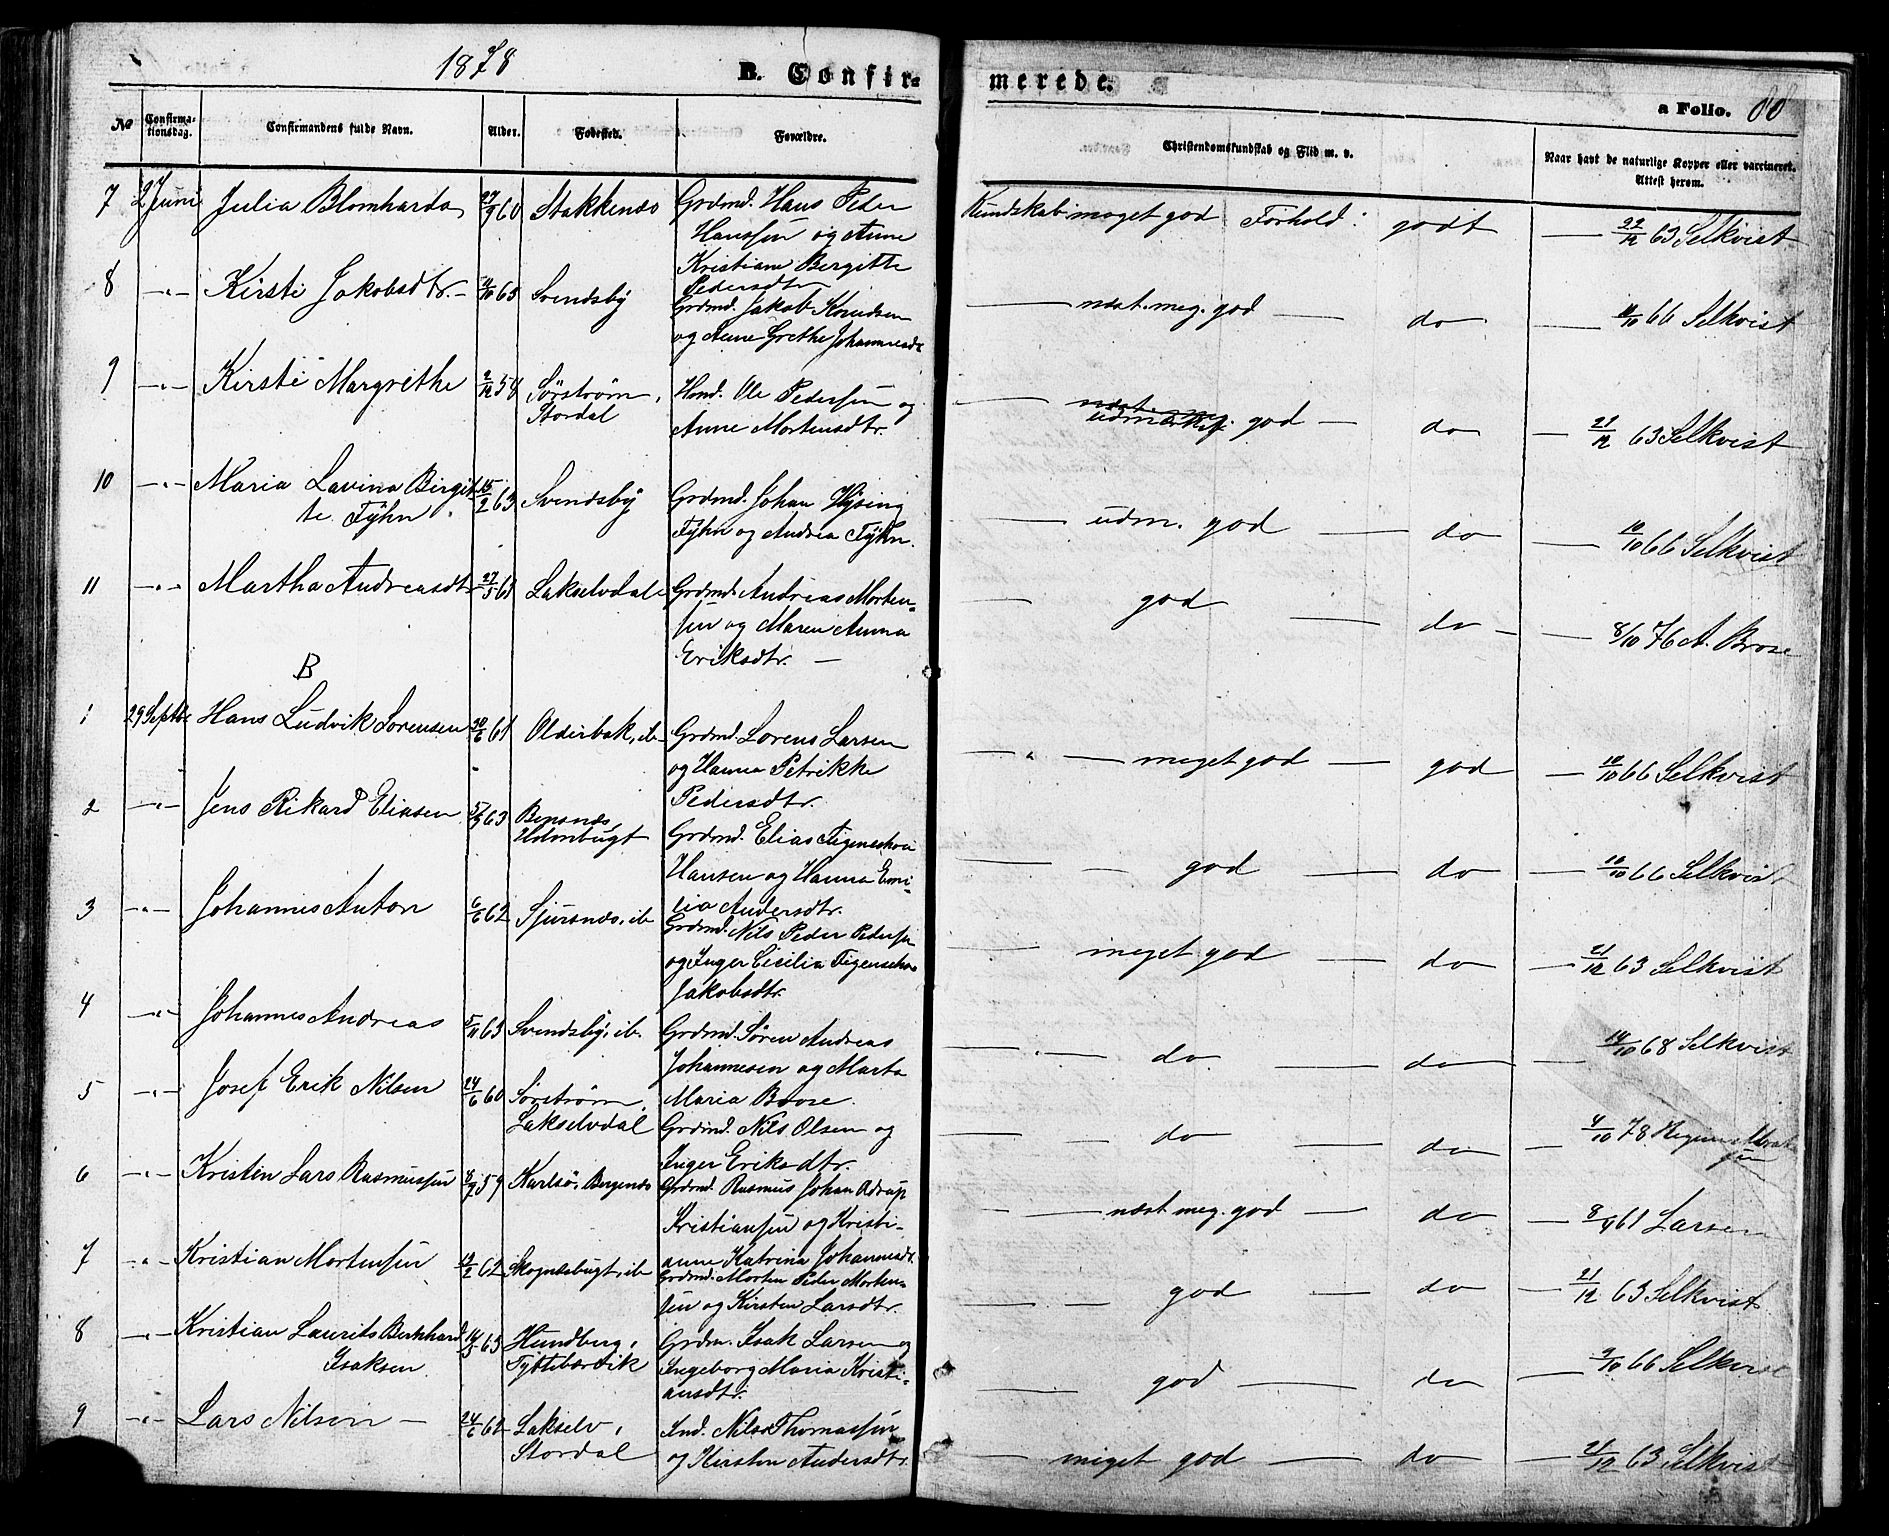 1878
B. Confir-
merede.
a Folio. 88
No Confirma-tionsdag. Confirmandens fulde Navn. Alder. Fødested. Forældre. Christendomskundskab og Flid m. v. Naar havt de naturlige Kopper eller vaccineret. Attest herom.
7 2 Juni Julia Blomharda 27/9 60 Stakkenæs Grdmd. Hans Peder Kundskab meget god Forhold: godt — 22/12 63 Selkvist
Hanssen og Anne
Kristiane Bergitte
Pedersdtr
8 —"— Kirsti Jakobsdtr. 63 Svendsby Grdmd. Jakob Knudsen — næst. meg. god — do — 10/10 66 Selkvist
og Anne Grethe Johannesdtr
9 —"— Kirsti Margrethe 2/12 58 Sörström, Hmd. Ole Pedersen og — udmærket god — do — 21/12 63 Selkvist
Stordal Anne Mortensdtr.
10 —"— Maria Lavina Birgit- 15/2 63 Svendsby Grdmd. Johan Hysing — udm. god — do — 10/10 66 Selkvist
te Fyhn. Fyhn og Andrea Fyhn.
11 —"— Martha Andreasdtr 27/5 61 Lakselvdal Grdmd. Andreas Morten- — god — do — 8/10 76 A. Brose
sen og Maren Anna
Eriksdtr. —
B
1 29 Septbr Hans Ludvik Lorensen 30/6 61 Olderbak, ib Grdmd. Lorens Larsen —"— meget god — god — 10/10 66 Selkvist
og Hanna Petrikke
Pedersdtr.
2 —"— Jens Rikard Eliasen 5/9 63 Bensnæs, Grdmd. Elias Figenschou — god — do — 10/10 66 Selkvist
Holmbugt Hansen og Hanna Emi-
lia Andersdtr.
3 —"— Johannes Anton 6/6 62 Sjursnæs, ib Grdmd. Nils Peder Pedersen — meget god — do — 21/12 63 Selkvist
og Inger Cicilia Figenschou
Jakobsdtr.
4 —"— Johannes Andreas 5/11 63 Svendsby, ib. Grdmd. Sören Andreas —"— do — do — 14/10 68 Selkvist
Johannesen og Marta
Maria Brose.
5 —"— Josef Erik Nilsen 24/6 60 Sörström, Grdmd. Nils Olsen og — do — do — 4/10 78
Lakselvdal Inger Eriksdtr.
6 —"— Kristen Lars Rasmussen 8/9 59 Karlsö, Bergenæs Grdmd. Rasmus Johan Adrup — næst meg. god — do — 8/9 61 Larsen
Kristiansen og Kristi-
anne Katrina Johannesdtr
7 —"— Kristian Mortensen 12/2 62 Skognæsbugt, ib Grdmd. Morten Peder Morten- — god — do — 21/12 63 Selkvist
sen og Kirsten Larsdtr.
8 —"— Kristian Laurits Bernhard 14/3 63 Hundberg, Grdm. Isak Larsen og — god — do — 9/10 66 Selkvist
Isaksen Tyttebærvik Ingeborg Maria Kristi-
ansdtr.
9 —"— Lars Nilsen — 24/6 62 Lakselv, Ind. Nils Thomassen — meget god — do — 21/12 63 Selkvist
Stordal og Kirsten Andersdtr.